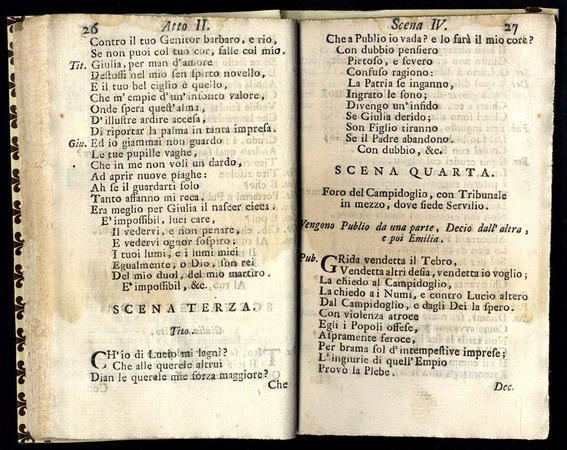 26 Atto II.
Contro il tuo Genitor barbaro, e rio,
Se non puoi col tuo cor, falle col mio.
Tit. Giulia, per man d'amore
Destossi nel mio sen spirto novello,
E il tuo bel ciglio è quello,
Che m'empie d'un'infinito valore,
Onde spera quest'alma,
D'illustre ardire accesa,
Di riportar la palma in tanta impresa.
Giu. Ed io giammai non guardo
Le tue pupille vaghe,
Che in me non voli un dardo,
Ad aprir nuove piaghe:
Ah se il guardarti solo
Tanto affanno mi reca,
Era meglio per Giulia il nascer cieca.
E' impossibil, luci care,
Il vedervi, e non penare,
E vedervi ognor sospiro;
I tuoi lumi, e i lumi miei
Egualmente, o Dio, son rei
Del mio duol, del mio martiro.
E' impossibil, &c.
SCENA TERZA.
Tito.
CH'io di Lucio mi lagni?
Che alle querele altrui
Dian le querele mie forza maggiore?
Che
Scena IV. 27
Che a Publio io vada? e lo farà il mio core?
Con dubbio pensiero
Pietoso, e severo
Confuso ragiono:
La Patria se inganno,
Ingrato le sono;
Divengo un'infido
Se Giulia derido;
Son Figlio tiranno
Se il Padre abandono.
Con dubbio, &c.
SCENA QUARTA.
Foro del Campidoglio, con Tribunale
in mezzo, dove siede Servilio.
Vengono Publio da una parte, Decio dall'altra,
e poi Emilia.
Pub. GRida vendetta il Tebro,
Vendetta altri desia, vendetta io voglio;
La chiedo al Campidoglio,
La chiedo a i Numi, e contro Lucio altero
Dal Campidoglio, e dagli Dei la spero.
Con violenza atroce
Egli i Popoli offese,
Aspramente feroce,
Per brama sol d'intempestive imprese;
L'ingiurie di quell'Empio
Provò la Plebe.
Dec.